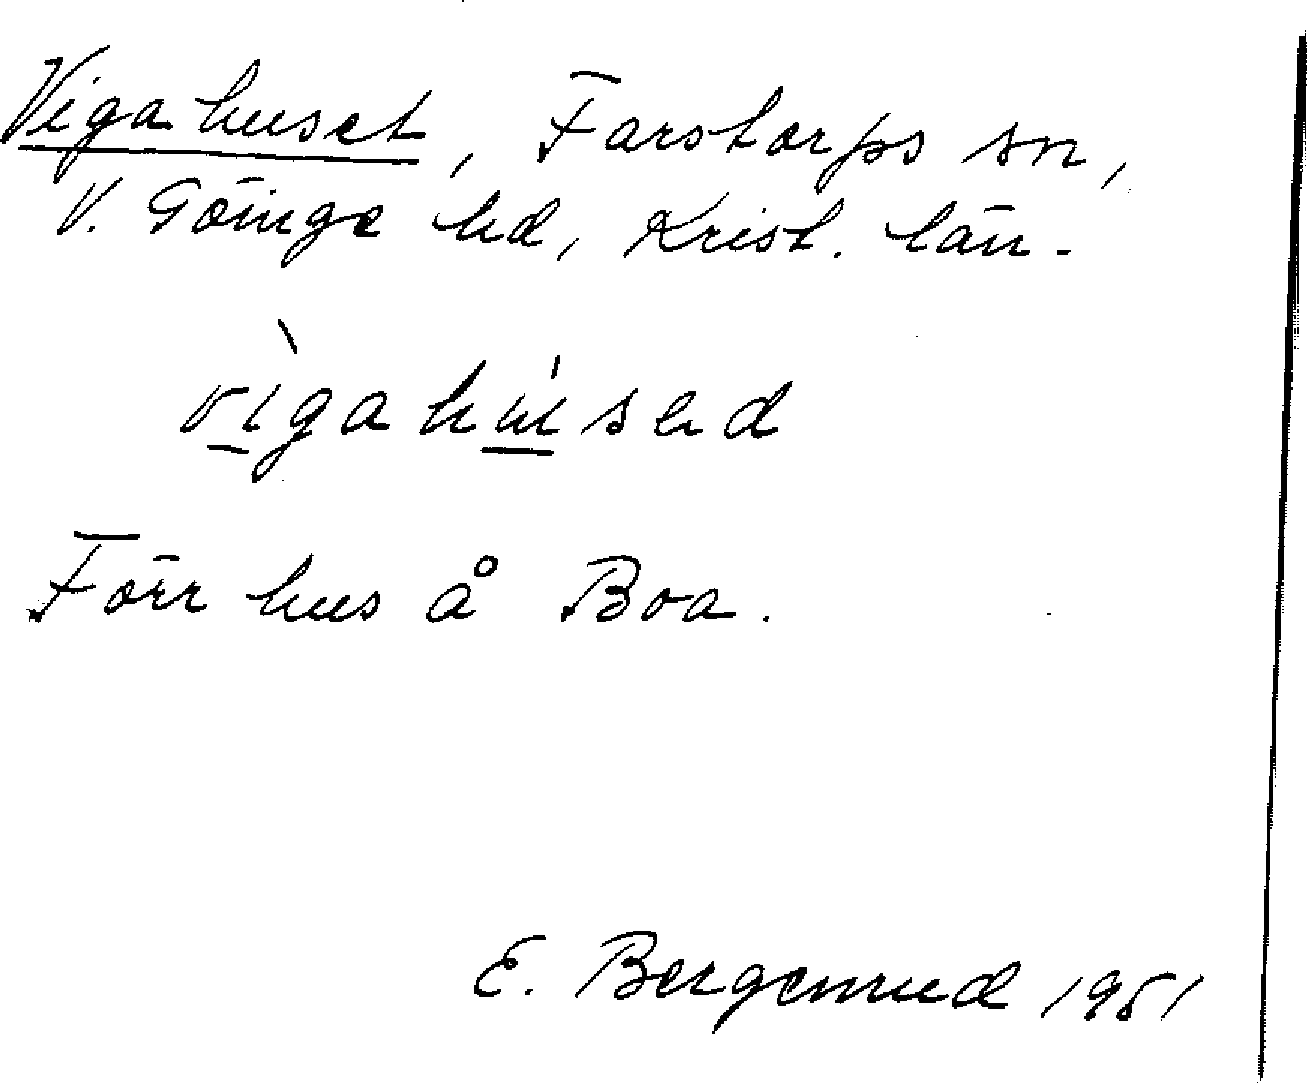 Vigahuset, Farstorps sn,
V. Göinge hd, Krist. län.
vìgahúsad
Förr hus å Boa.
E. Bergenrud 1951